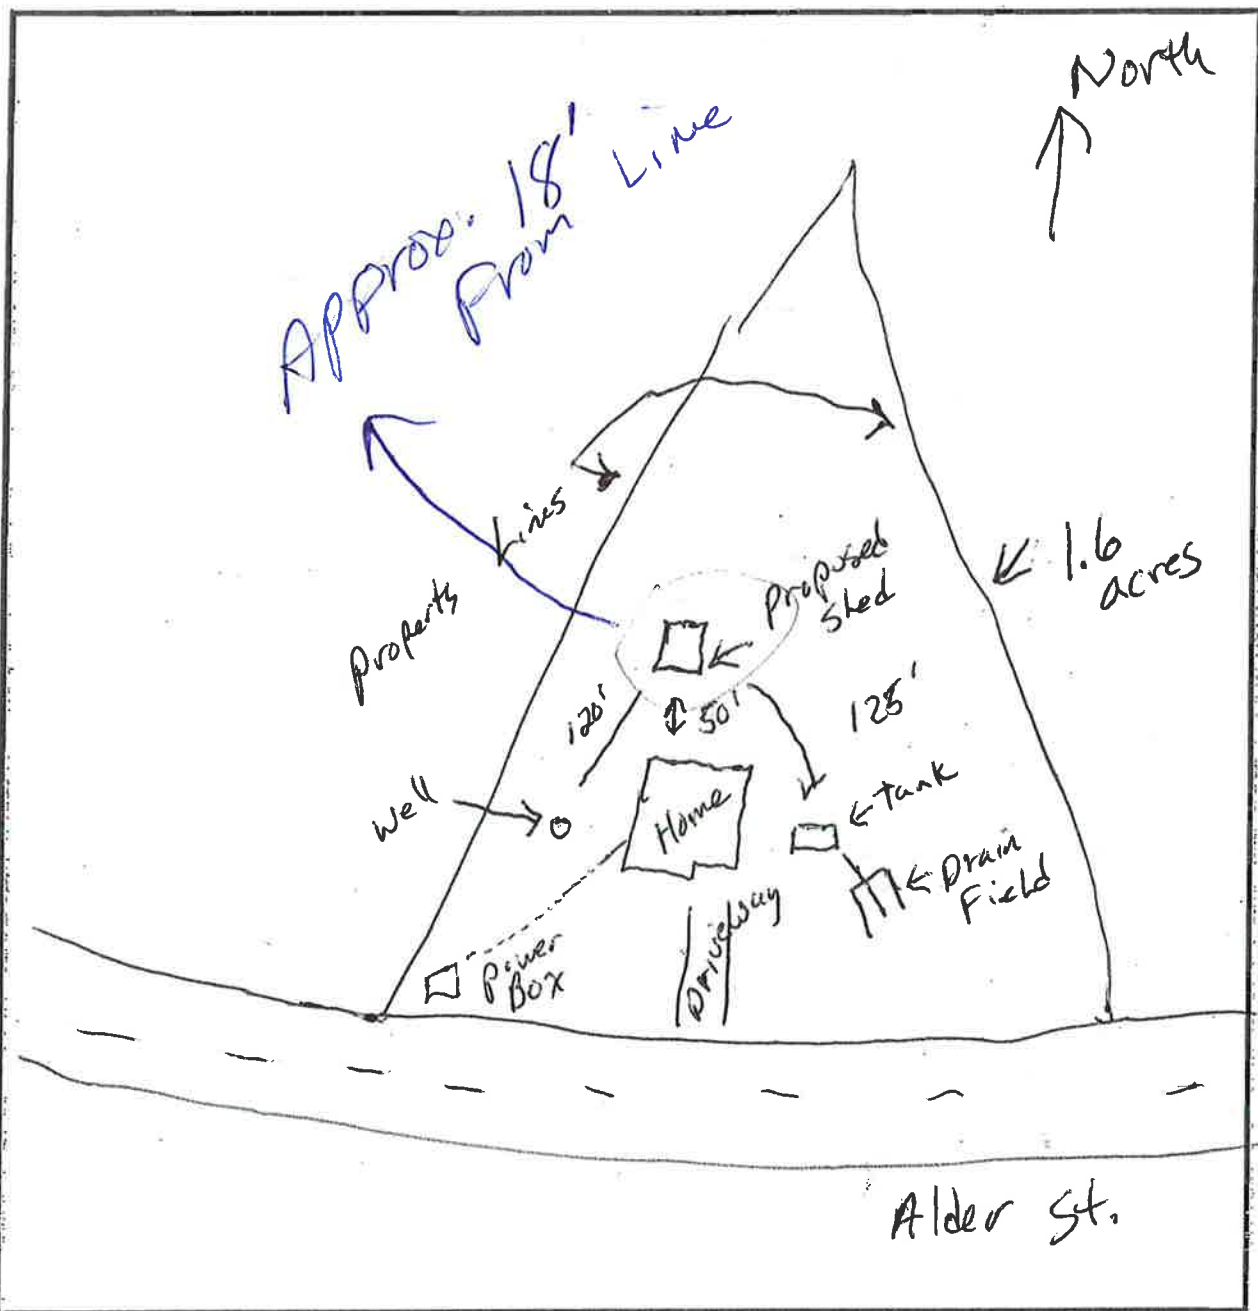 North
Approx. 18'
from Line
Property Lines
1.6
acres
Proposed
shed
120'
50'
125'
Well
Home
Tank
Drain
Field
Power
Box
Driveway
Alder St.